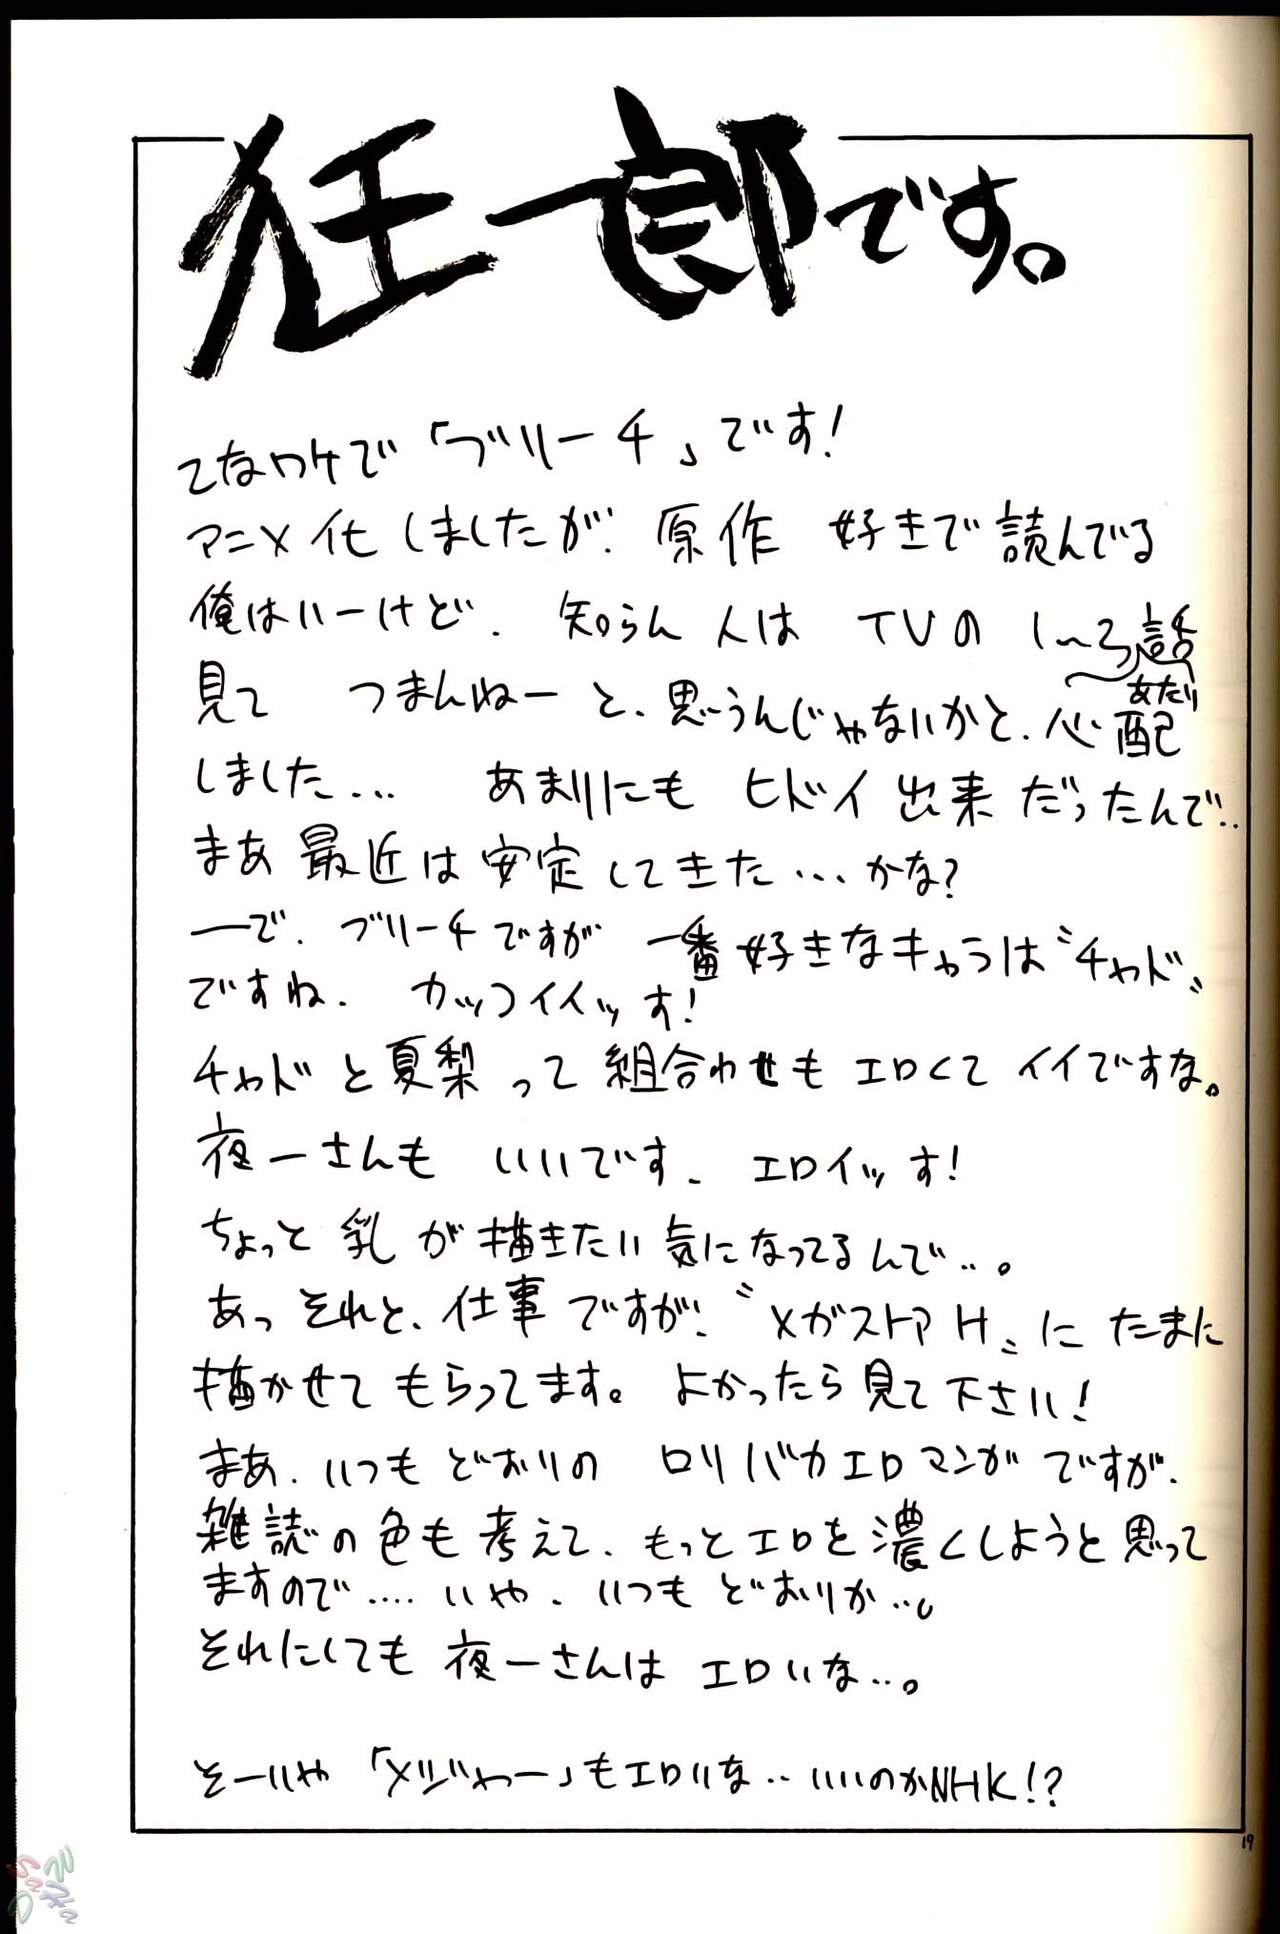 狂一郎です。
てなワケで「ブリーチ」です!
アニメ化しましたが、原作 好きで読んでる
俺はいーけど、知らん人は TVの1〜3話
あたり
見て つまんねーと、思うんじゃないかと、心配
しました... あまりにもヒドイ出来だったんで..
まあ最近は安定してきた...かな?
―で、ブリーチですが 一番好きなキャラは〝チャド〟
ですね、カッコイイッす!
チャドと夏梨って組合わせもエロくてイイですな。
夜一さんも いいです、エロイッす!
ちょっと乳が描きたい気になってるんで..。
あっそれと、仕事ですが、〝メガストアH〟にたまに
描かせてもらってます。よかったら見て下さい!
まあ、いつもどおりの ロリバカエロマンガですが、
雑誌の色も考えて、もっとエロを濃くしようと思って
ますので.... いや、いつもどおりか..。
それにしても夜一さんは エロいな..。
そーいや「メジャー」もエロいな..いいのかNHK!?
19